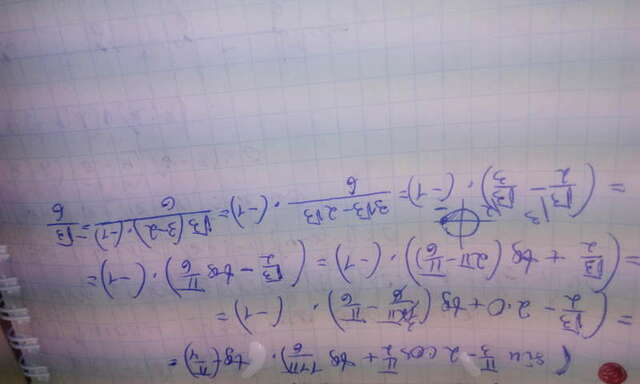 (sin π/3 - 2 cos π/2 + tg 11π/6) · tg(-π/4) =
= (√3/2 - 2·0 + tg(12π/6 - π/6)) · (-1) =
= (√3/2 + tg(2π - π/6)) · (-1) = (√3/2 - tg π/6) · (-1) =
= (√3/2 - √3/3) · (-1) = (3√3 - 2√3)/6 · (-1) = √3(3-2)·(-1)/6 = -√3/6